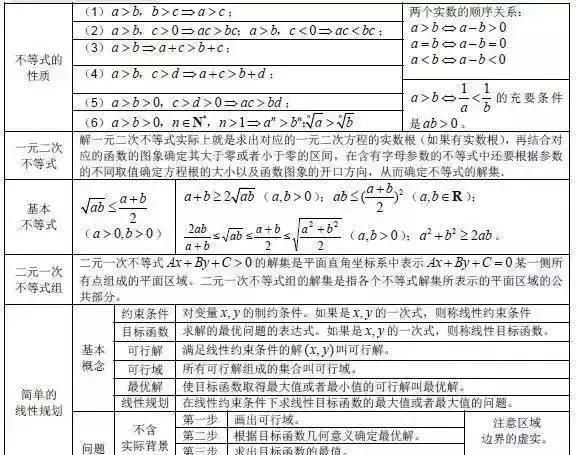 不等式的
性质
(1) a>b, b>c⇒a>c;
(2) a>b, c>0⇒ac>bc; a>b, c<0⇒ac<bc;
(3) a>b⇒a+c>b+c;
(4) a>b, c>d⇒a+c>b+d;
(5) a>b>0, c>d>0⇒ac>bd;
(6) a>b>0, n∈N*, n>1⇒aⁿ>bⁿ; ⁿ√a>ⁿ√b
两个实数的顺序关系:
a>b⇔a-b>0
a=b⇔a-b=0
a<b⇔a-b<0
a>b⇔1/a<1/b 的充要条件
是ab>0。
一元二次
不等式
解一元二次不等式实际上就是求出对应的一元二次方程的实数根(如果有实数根),再结合对
应的函数的图象确定其大于零或者小于零的区间,在含有字母参数的不等式中还要根据参数
的不同取值确定方程根的大小以及函数图象的开口方向,从而确定不等式的解集.
基本
不等式
√ab≤(a+b)/2
(a>0,b>0)
a+b≥2√ab (a,b>0); ab≤((a+b)/2)² (a,b∈R);
2ab/(a+b)≤√ab≤(a+b)/2≤√((a²+b²)/2) (a,b>0); a²+b²≥2ab。
二元一次
不等式组
二元一次不等式Ax+By+C>0的解集是平面直角坐标系中表示Ax+By+C=0某一侧所
有点组成的平面区域。二元一次不等式组的解集是指各个不等式解集所表示的平面区域的公
共部分。
简单的
线性规划
基本
概念
约束条件 对变量x,y的制约条件。如果是x,y的一次式,则称线性约束条件
目标函数 求解的最优问题的表达式。如果是x,y的一次式,则称线性目标函数。
可行解 满足线性约束条件的解(x,y)叫可行解。
可行域 所有可行解组成的集合叫可行域。
最优解 使目标函数取得最大值或者最小值的可行解叫最优解。
线性规划 在线性约束条件下求线性目标函数的最大值或者最大值的问题。
问题
不含
实际背景
第一步 画出可行域。
第二步 根据目标函数几何意义确定最优解。
第三步 求出目标函数的最值。
注意区域
边界的虚实。